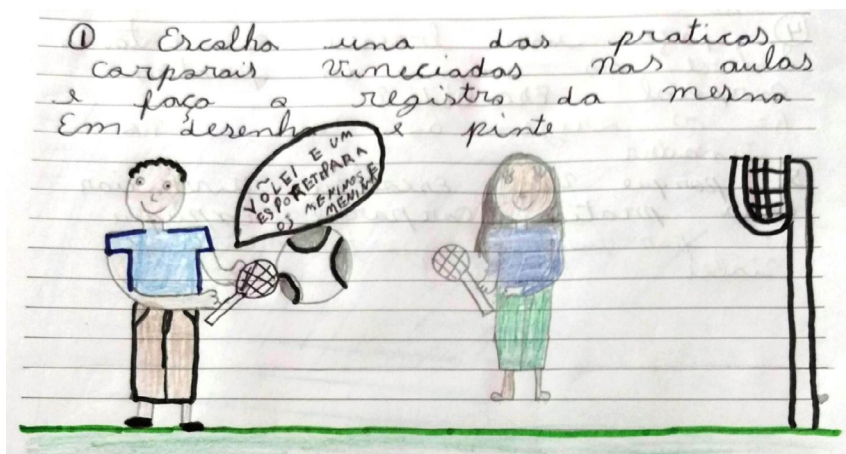 ① Escolha una das praticas
carparais vineciadas nas aulas
e faço o registro da mesna
Em desenho e pinte
VÔLEI E UM
ESPORETEPARA
OS MENINOS E
MENINAS